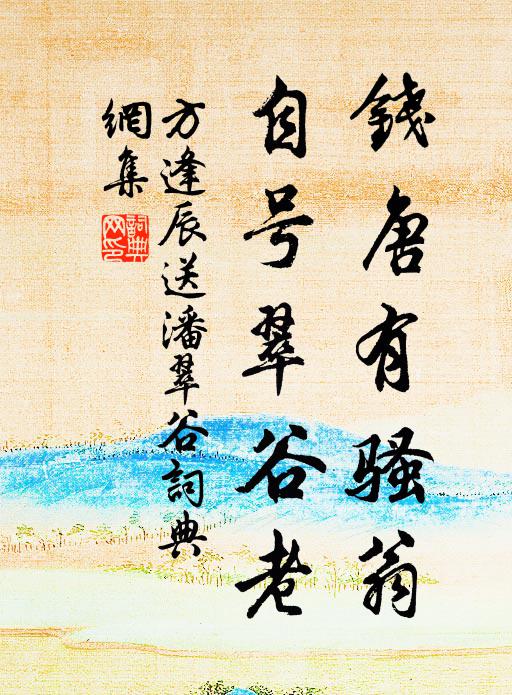 錢唐有骚翁
自号翠谷老
方逢辰送潘翠谷詞典
網集
詞典
网印